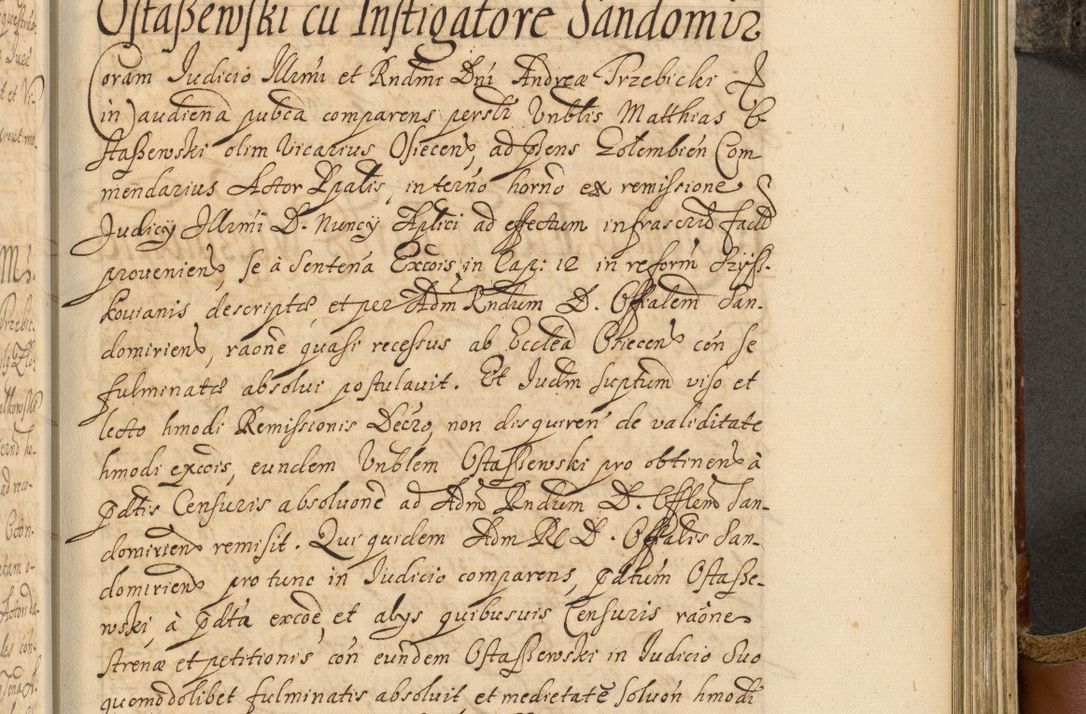 Ostaszewski cu Instigatore Sandomir
Coram Judicio Illrmi et Rndmi Dni Andreæ Trzebicki &
in audiena pubca comparens persli Vnblis Matthias O-
staszewski olim Vicarius Osiecen, ad pdens Golembien Com
mendarius Actor Ppalis, in terno horno ex remissione
Judicij Illrmi D. Nuncij Aplici ad effectum infrascrip facto
provenien, se à Sentena Excois in Cap: 12 in reform Szysz-
kovianis descriptæ, et per Adm Rndum D. Offalem San-
domirien, raone quasi recessus ab Ecclea Osiecen con se
fulminatæ absolvi postulavit. Et Judm suptum viso et
lecto hmodi Remissionis Decro, non disquiren de validitate
hmodi excois, eundem Vnblem Ostaszewski pro obtinen à
pdtis Censuris absoluone ad Adm Rndum D. Offlem San-
domirien remisit. Qui quidem Adm R D. Offalis San-
domirien pro tunc in Judicio comparens, pdtum Ostasze-
wski à pdta excoe, et alijs quibusuis Censuris raone
strenæ et petitionis con eundem Ostaszewski in Judicio suo
quomodolibet fulminatis absoluit et medietate soluon hmodi